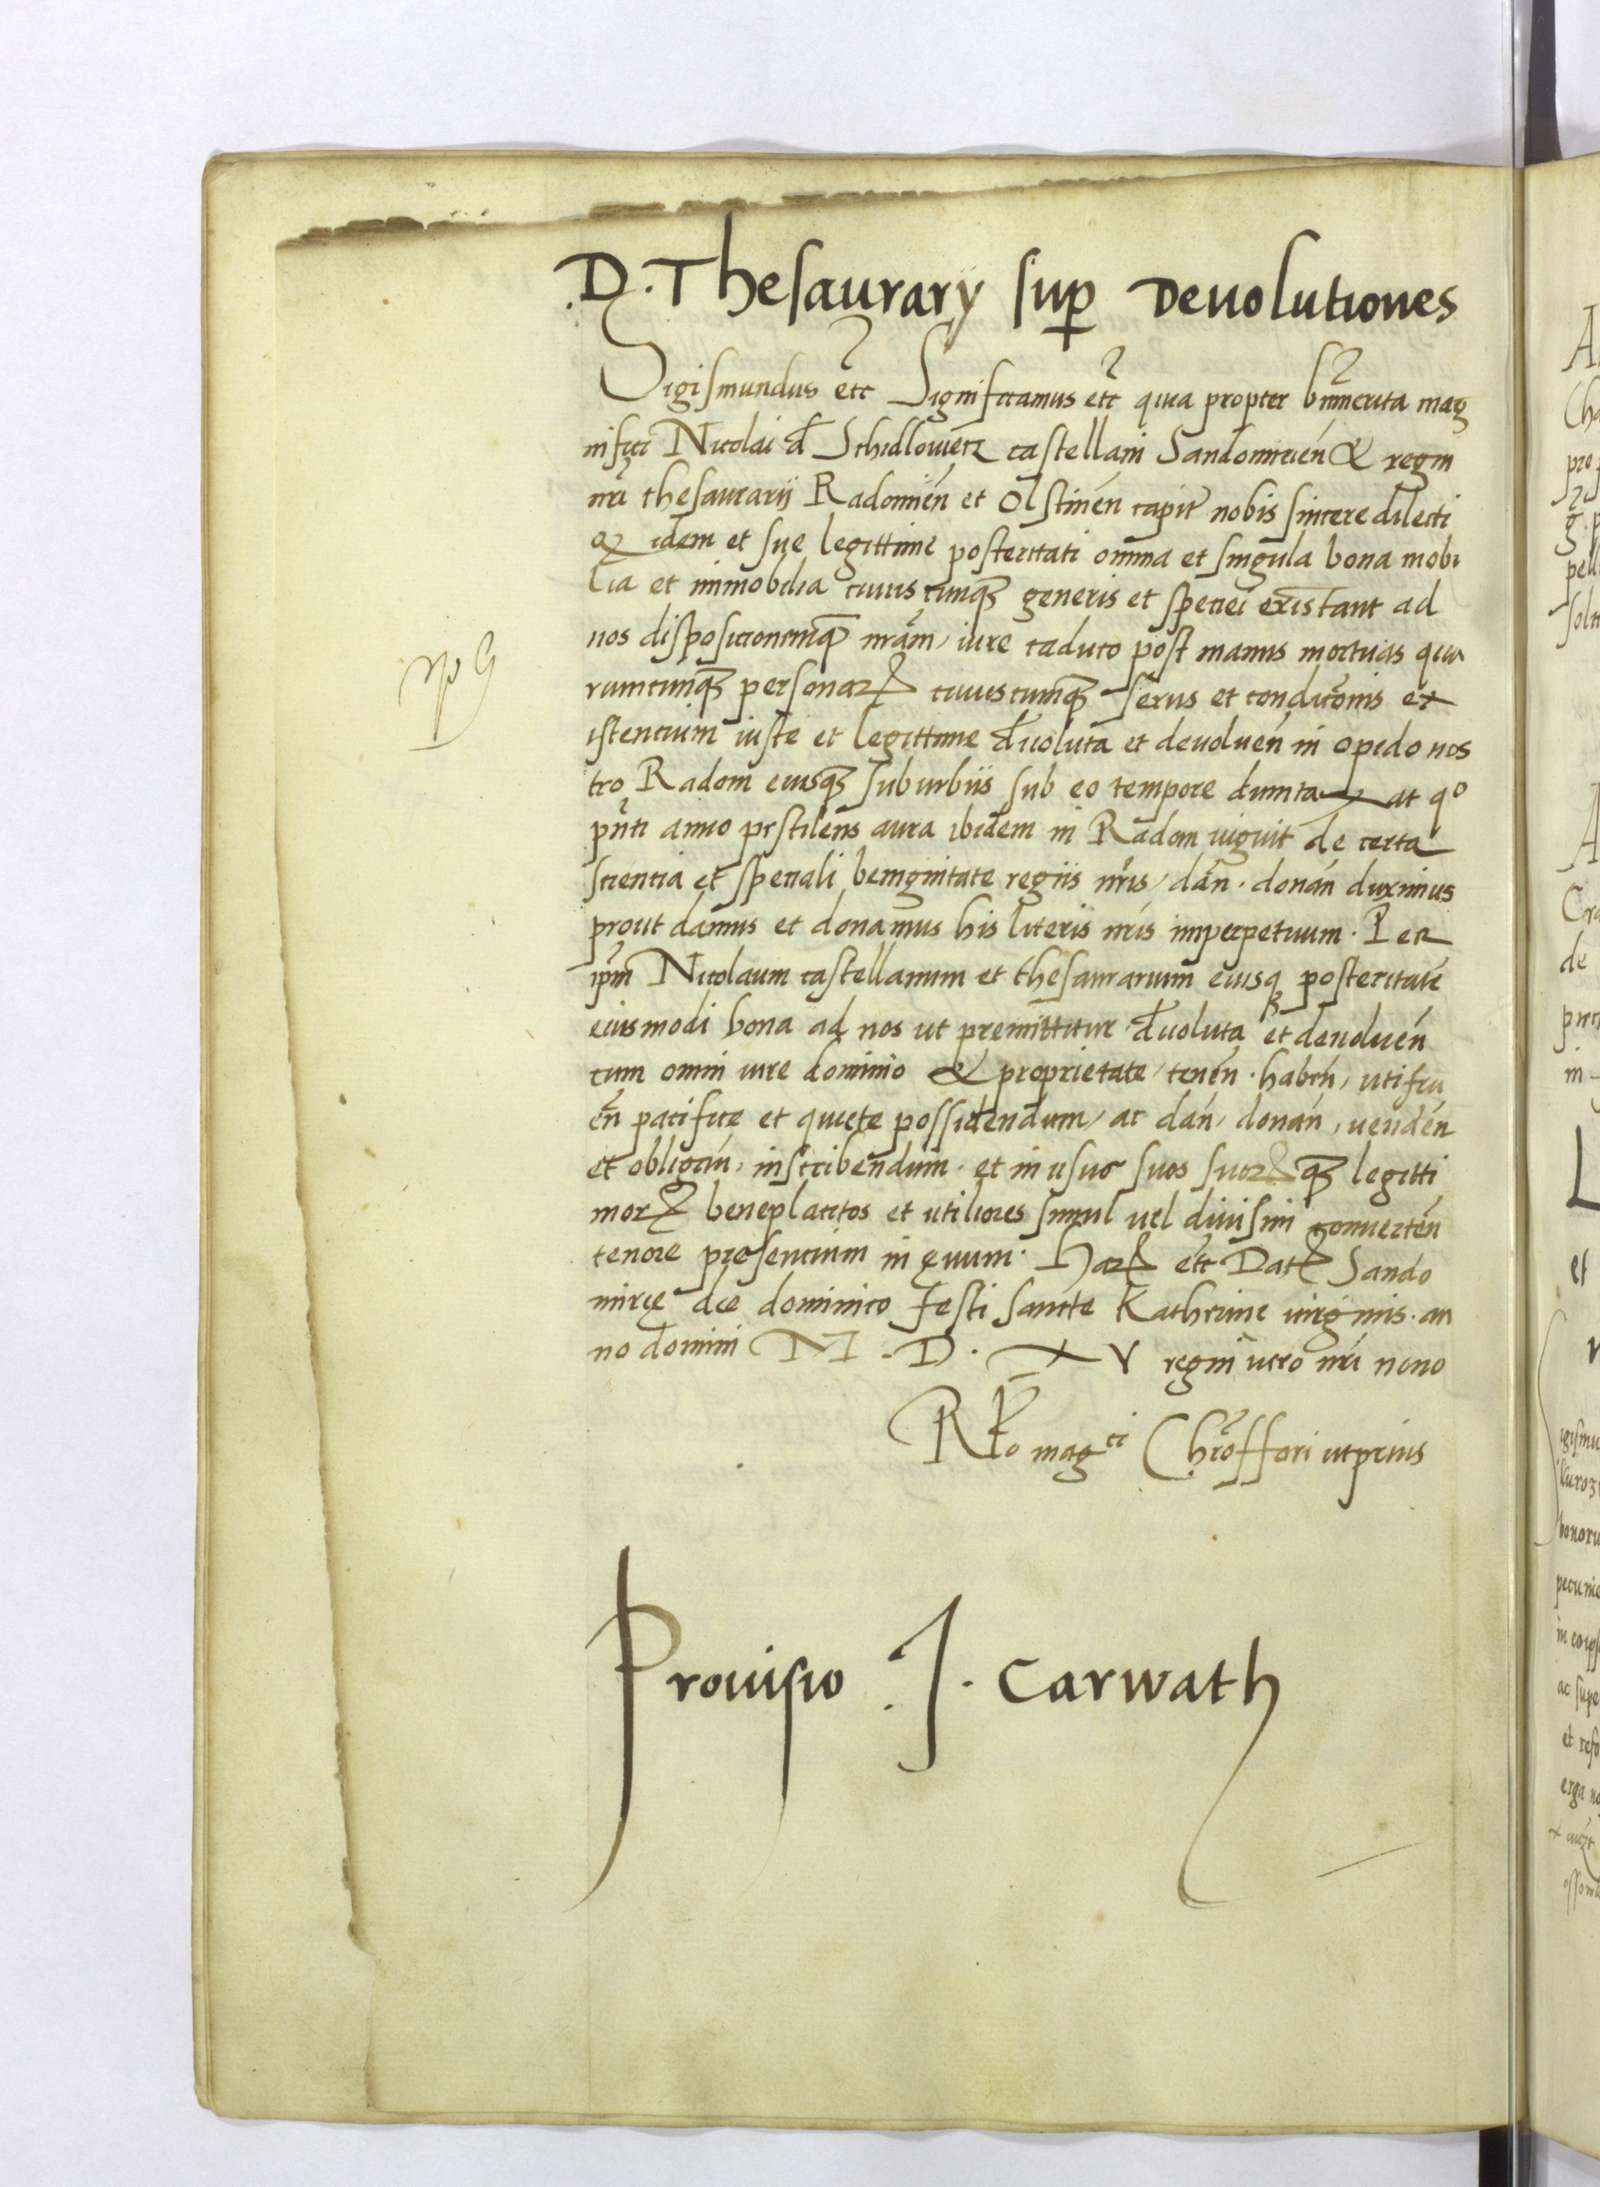 D. Thesaurarÿ sup Deuolutiones
Sigismundus etc Significamus etc quia propter bnmerita mag
nifici Nicolai d Schidlowiecz castellani Sandomirien & regni
nri thesaurarii Radomien et Olstinen capit nobis sincere dilecti
q idem et sue legittime posteritati omnia et singula bona mobi
lia et immobilia cuiuscunqꝫ generis et speciei existant ad
nos dispositionemqꝫ nram / iure caduco post manus mortuas quo
rumcunqꝫ personarꝝ cuiuscumqꝫ sexus et conditonis ex
istencium iuste et legittime duoluta et deuoluen in opido nos
tro Radom eiusqꝫ suburbiis sub eo tempore dumtaxat qo
pnti anno pestilens aura ibidem in Radom uiguit de certa
scientia et speciali benignitate regiis nris / dan . donan duximus
prout damus et donamus his literis nris imperpetuum . Per
ipm Nicolaum castellanum et thesaurarium eiusqꝫ posteritate
eiusmodi bona ad nos ut premittitur duoluta et deuoluen
cum omni iure dominio & proprietate / tenen . haben / utifru
en pacifice et quiete possidendum / ac dan / donan / uenden
et obligan / inscribendum . et in usus suos suorꝝqꝫ legitti
morꝝ beneplacitos et utiliores simul uel diuisim conuerten
tenore presencium in ęuum . Harꝝ etc Datꝝ Sando
mirię die dominico festi sancte Katherine uirginis . an
no domini M . D . X V regni uero nri nono
R̃lo magci Chroffori ut prius
Prouisio J. Carwath